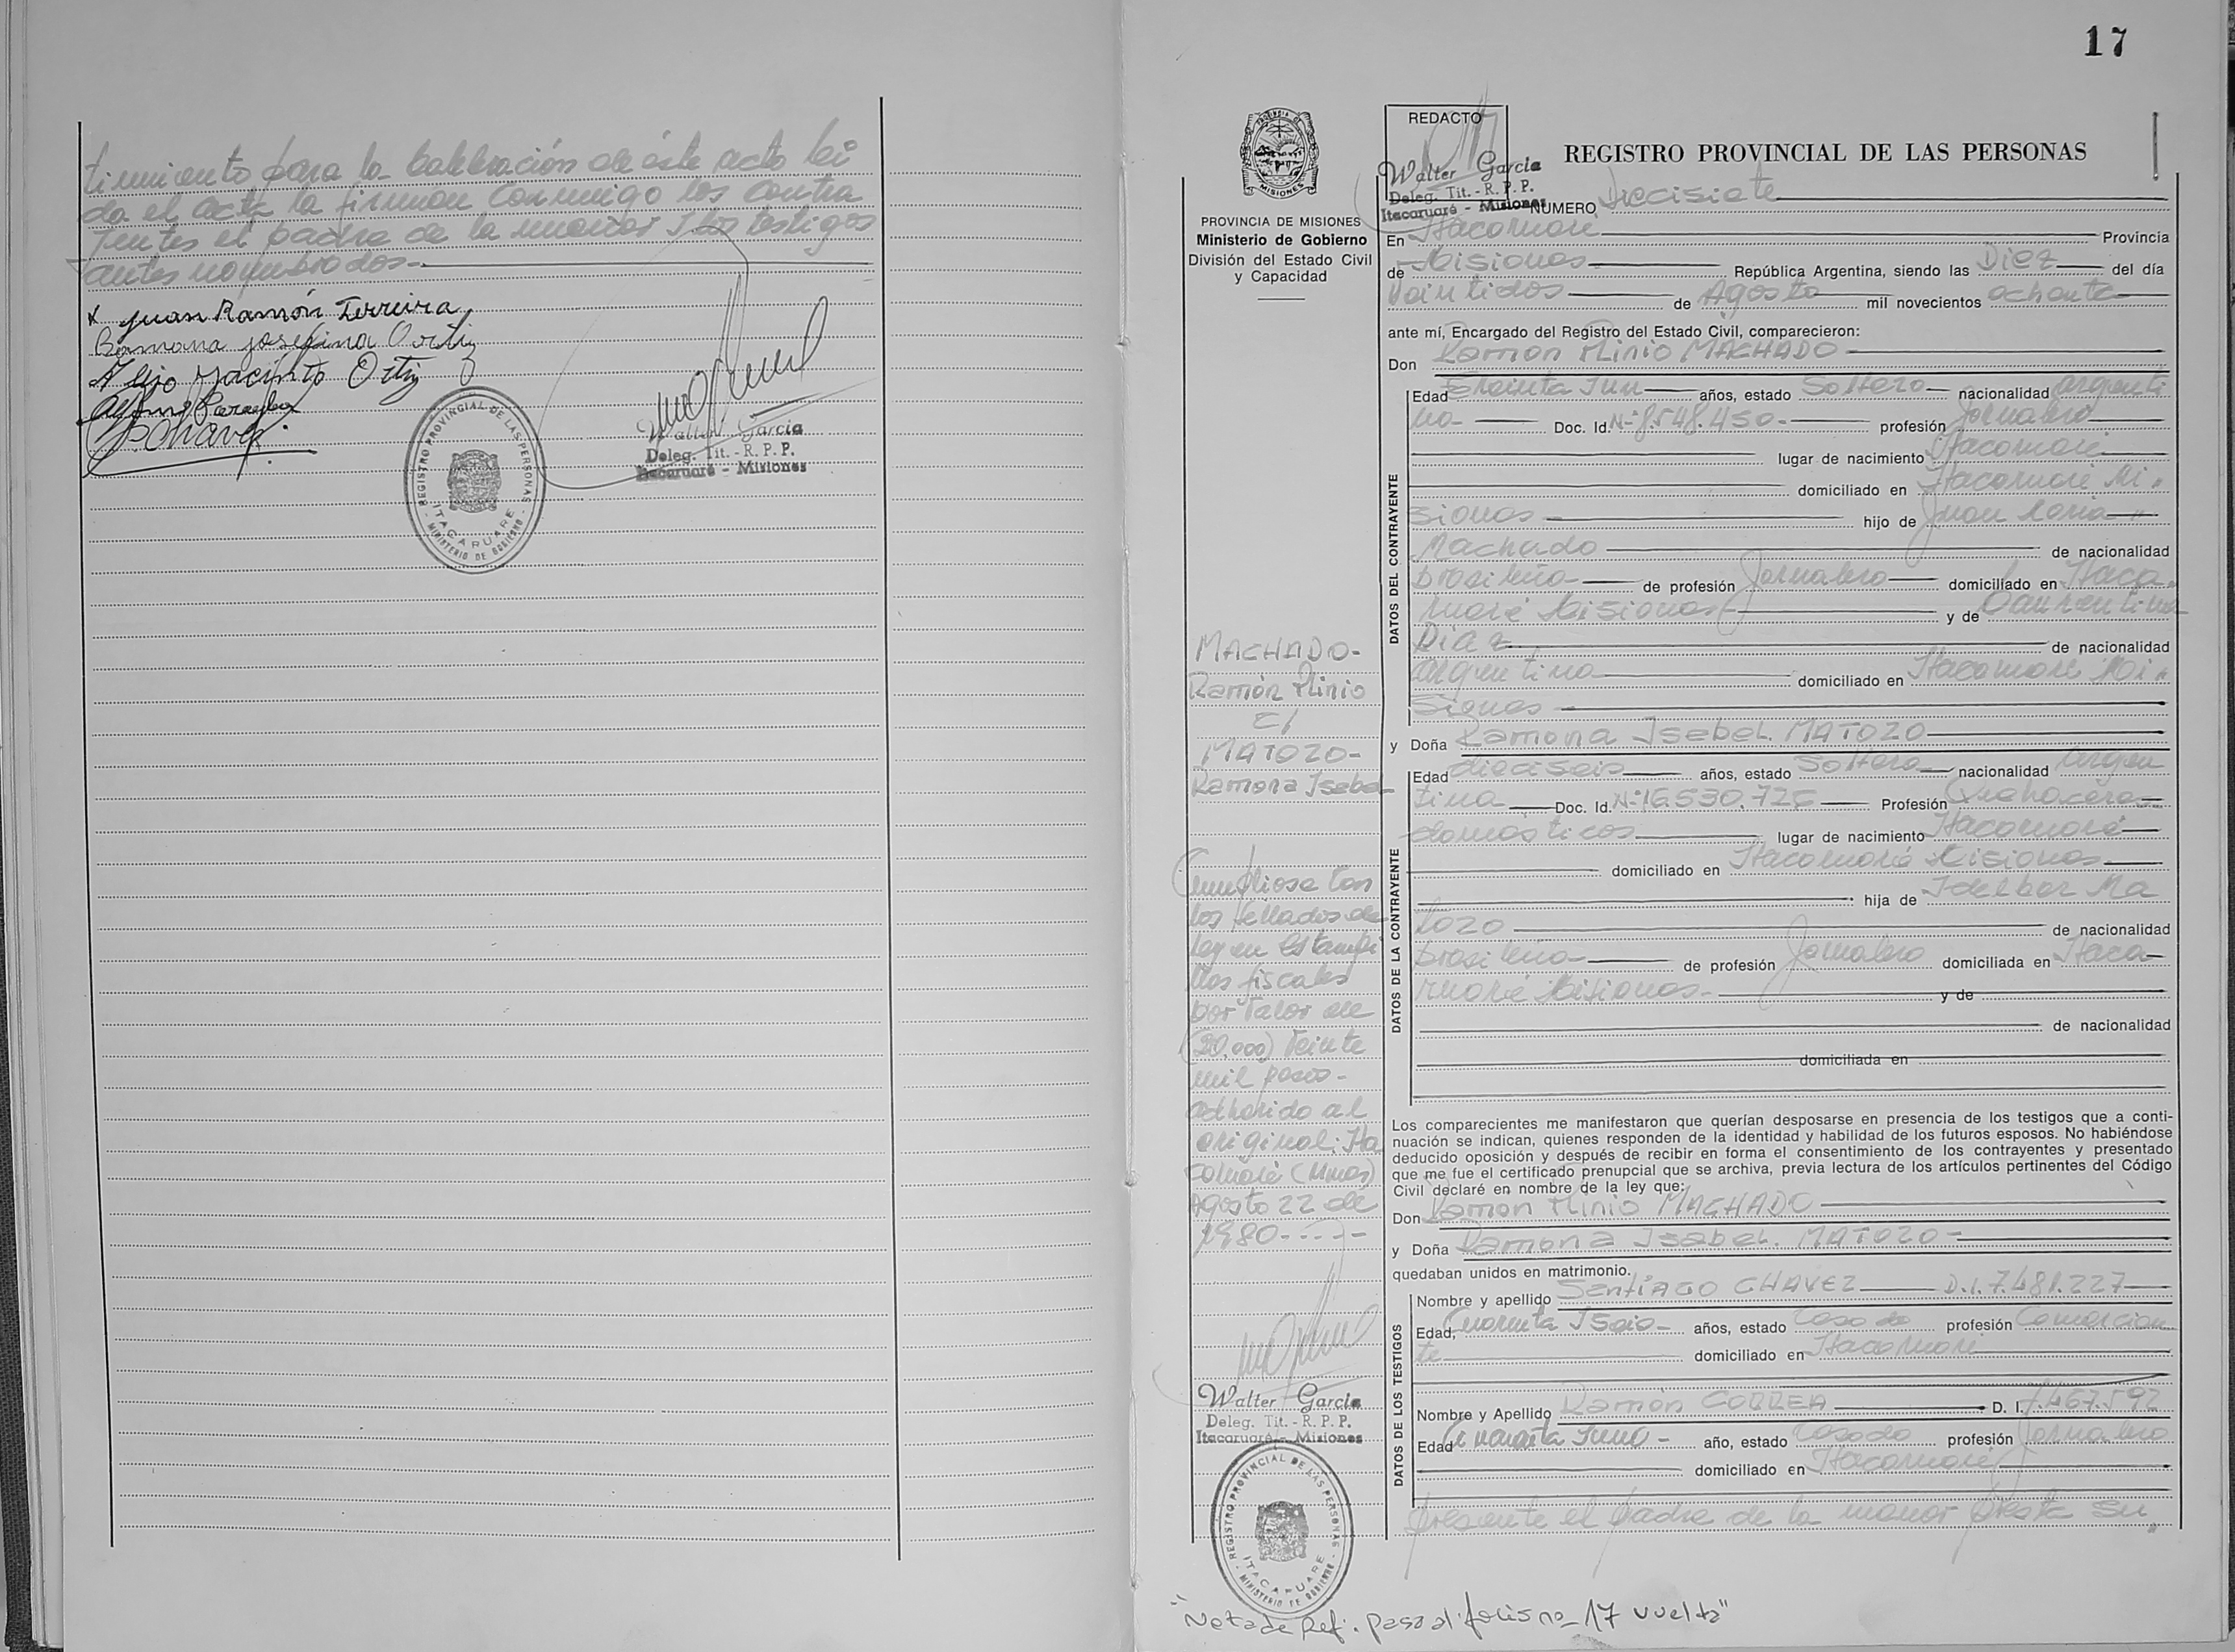 timiento para la celebración de éste acto lei
da el acta la firman conmigo los contra
yentes el padre de la menor y los testigos
antes nombrados.-
x Juan Ramón Ferreira
Ramona Josefina Ortiz
Alejo Jacinto Ortiz
Walter García
Deleg. Tit. - R. P. P.
Itacaruaré - Misiones
REGISTRO PROVINCIAL DE LAS PERSONAS
ITACARUARE
MINISTERIO DE GOBIERNO
17
PROVINCIA DE MISIONES
Ministerio de Gobierno
División del Estado Civil
y Capacidad
MACHADO-
Ramón Plinio
C/
MATOZO-
Ramona Isabel
Cumpliose con
los sellados de
ley en estampi
llas fiscales
por valor de
(20.000) veinte
mil pesos-
adherido al
original: Ita
caruaré (Mnes)
Agosto 22 de
1980-----
Walter García
Deleg. Tit. - R. P. P.
Itacaruaré - Misiones
REGISTRO PROVINCIAL DE LAS PERSONAS
ITACARUARE
MINISTERIO DE GOBIERNO
REDACTO
Walter García
Deleg. Tit. - R. P. P.
Itacaruaré - Misiones
REGISTRO PROVINCIAL DE LAS PERSONAS
NUMERO Diecisiete
En Itacaruaré Provincia
de Misiones República Argentina, siendo las Diez del día
Veintidos de Agosto mil novecientos ochenta
ante mí, Encargado del Registro del Estado Civil, comparecieron:
Don Ramon Plinio MACHADO
DATOS DEL CONTRAYENTE
Edad Treinta y un años, estado Soltero nacionalidad argenti
no- Doc. Id. Nº 8.548.450.- profesión Jornalero
lugar de nacimiento Itacaruaré
domiciliado en Itacaruaré Mi"
siones hijo de Juan Maria "
Machado de nacionalidad
brasileña de profesión Jornalero domiciliado en Itaca
ruaré Misiones y de Laurentina
Diaz de nacionalidad
argentina domiciliado en Itacaruaré Mi"
siones
y Doña Ramona Isabel. MATOZO
DATOS DE LA CONTRAYENTE
Edad dieciseis años, estado Soltera nacionalidad Argen
tina Doc. Id. Nº 16.530.726 Profesión Quehaceres
domesticos lugar de nacimiento Itacaruaré
domiciliado en Itacaruaré Misiones
hija de Idelbar Ma
tozo de nacionalidad
brasileña de profesión Jornalero domiciliada en Itaca
ruaré Misiones.- y de
de nacionalidad
domiciliada en
Los comparecientes me manifestaron que querían desposarse en presencia de los testigos que a conti-
nuación se indican, quienes responden de la identidad y habilidad de los futuros esposos. No habiéndose
deducido oposición y después de recibir en forma el consentimiento de los contrayentes y presentado
que me fue el certificado prenupcial que se archiva, previa lectura de los artículos pertinentes del Código
Civil declaré en nombre de la ley que:
Don Ramon Plinio MACHADO
y Doña Ramona Isabel. MATOZO-
quedaban unidos en matrimonio.
DATOS DE LOS TESTIGOS
Nombre y apellido SANTIAGO CHAVEZ D.I. 7.481.227
Edad, Cuarenta y seis- años, estado Casado profesión Comercian
te domiciliado en Itacaruaré
Nombre y Apellido Ramón CORREA D. I.
Edad Cuarenta y uno- año, estado Casado profesión Jornalero
domiciliado en Itacaruaré
presente el padre de la menor presta su"
"Nota de Ref: pasa al folis no 17 vuelta"